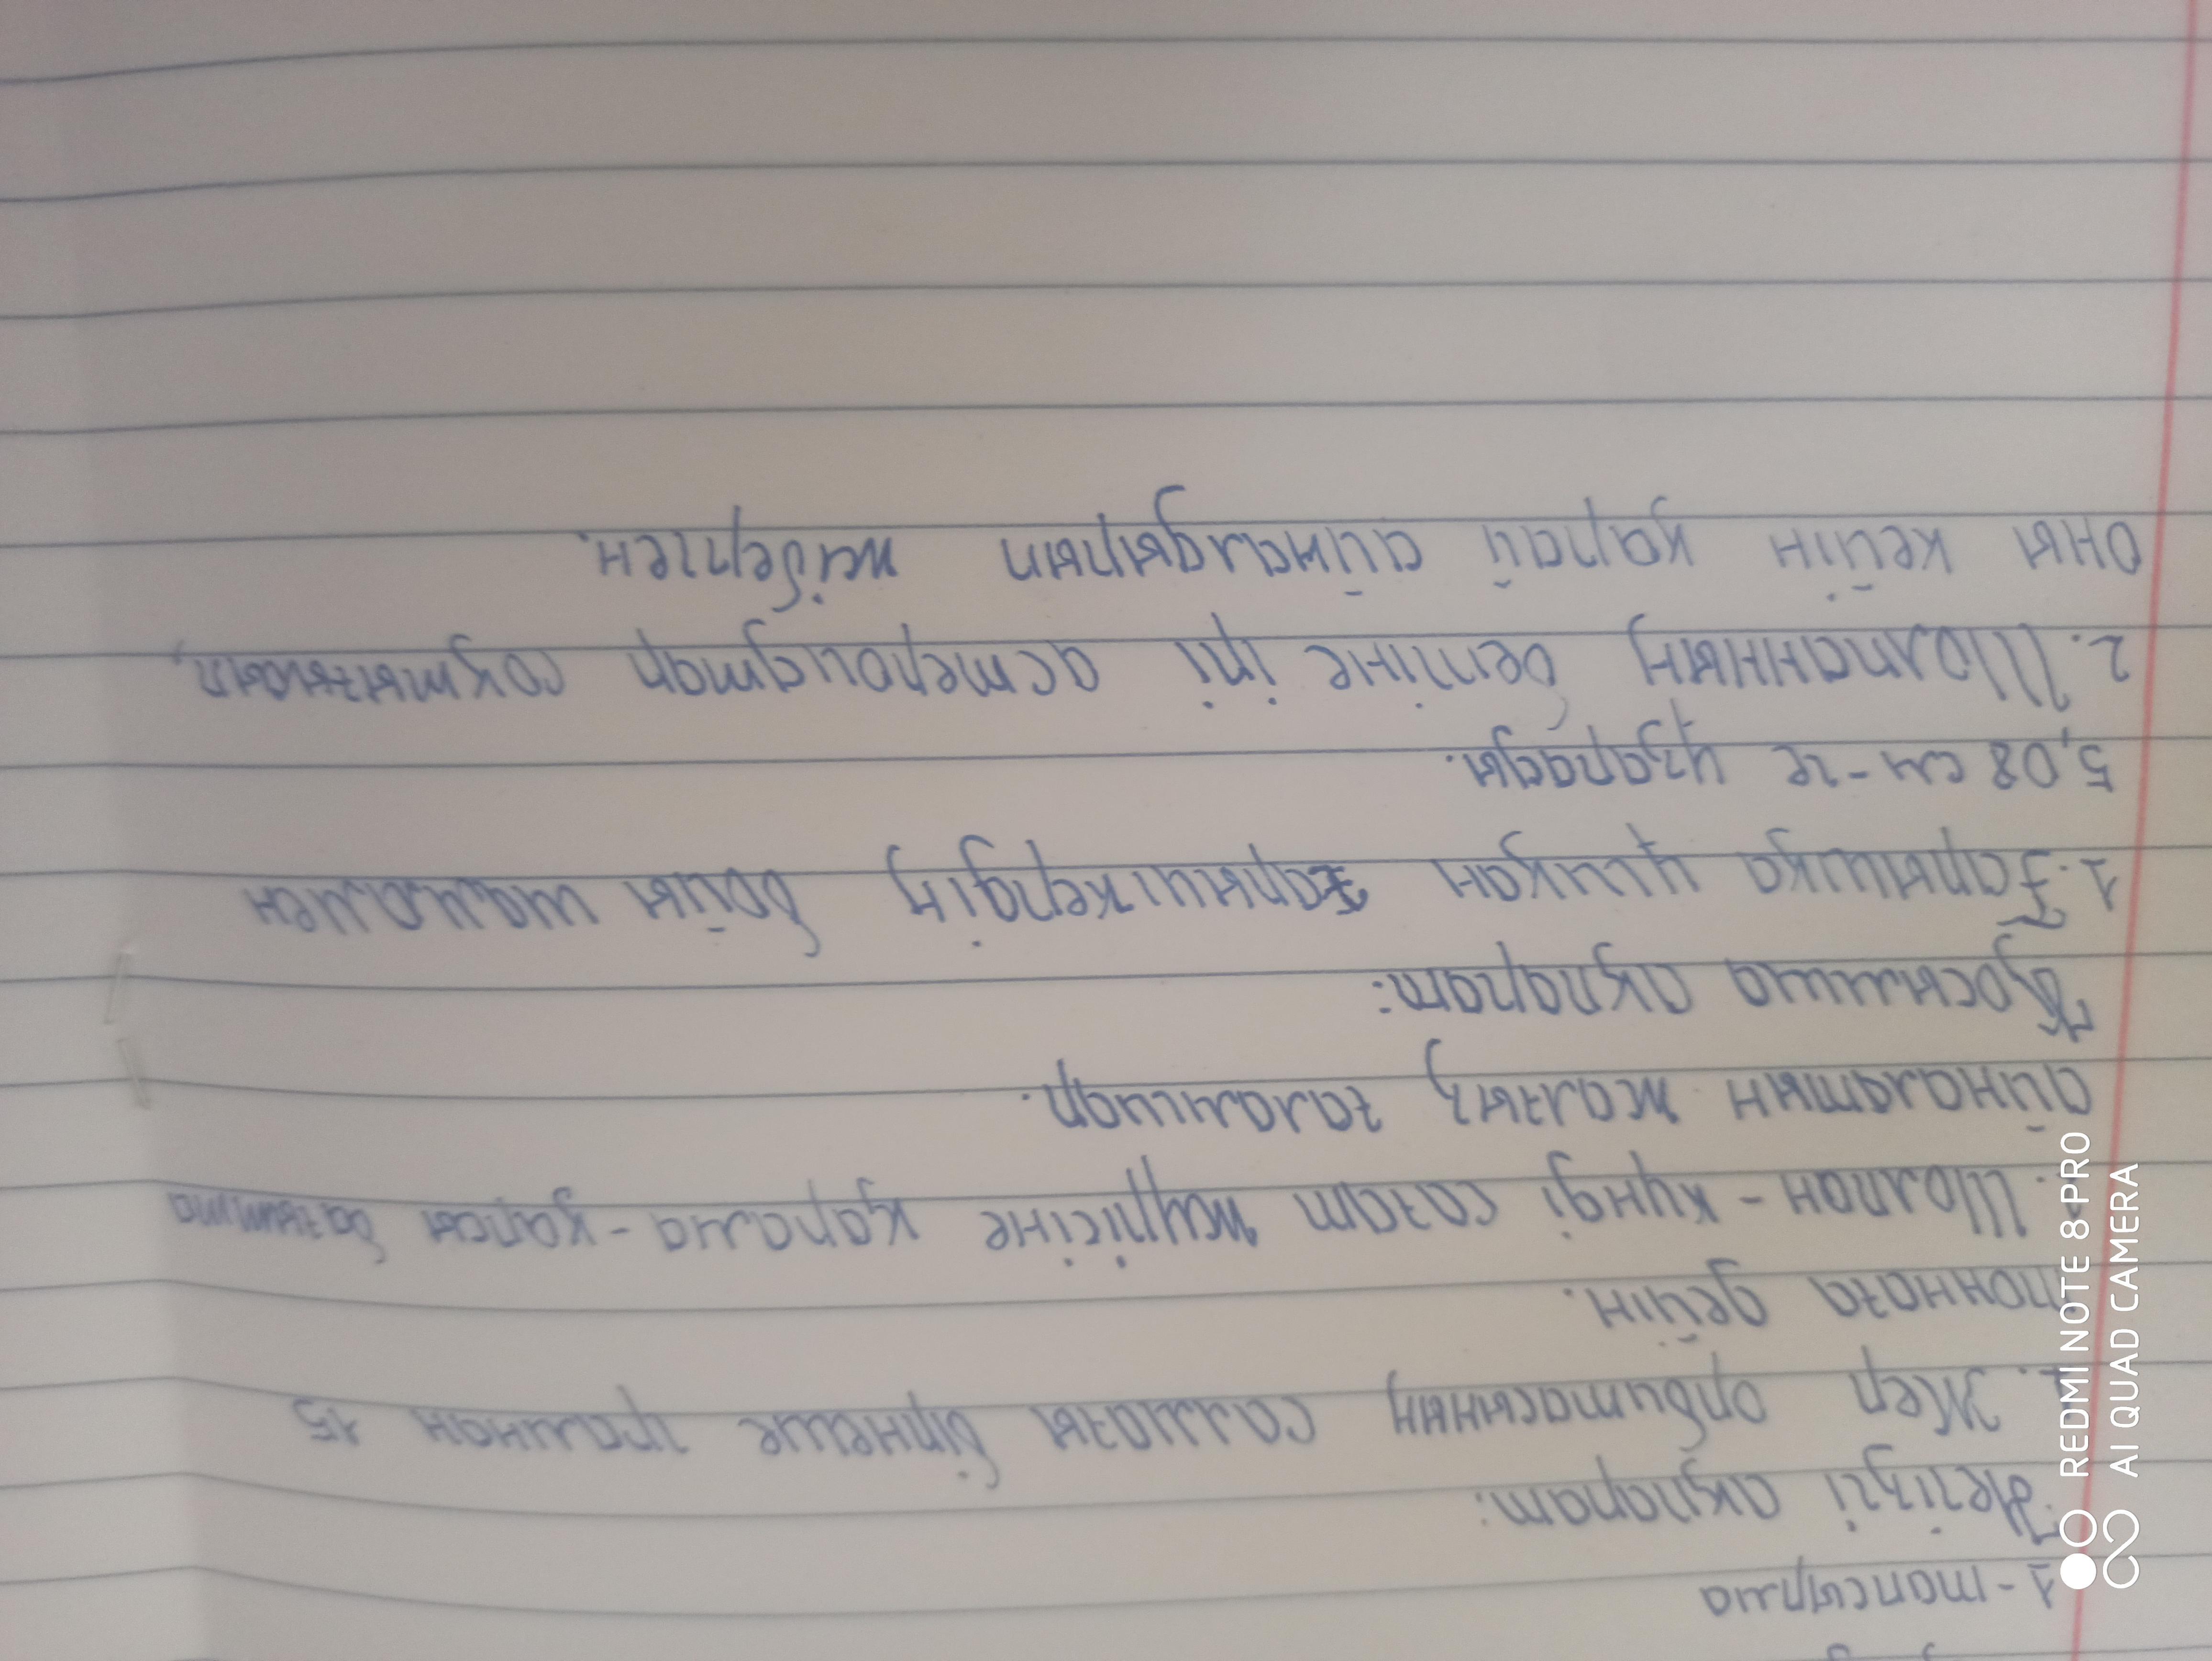 1-тапсырма
Негізгі ақпарат:
1. Жер орбитасының салмағы бірнеше грамнан 15
тоннаға дейін.
2. Шолпан - күнді сағат тіліне қарама-қарсы бағытта
айналатын жалғыз ғаламшар.
Қосымша ақпарат:
1. Ғарышқа ұшқан ғарышкердің бойы шамамен
5,08 см-ге ұзарады.
2. Шолпанның бетіне ірі астероидтар соқтығысып,
оны кейін қарай айналдырып жіберген.
REDMI NOTE 8 PRO
AI QUAD CAMERA